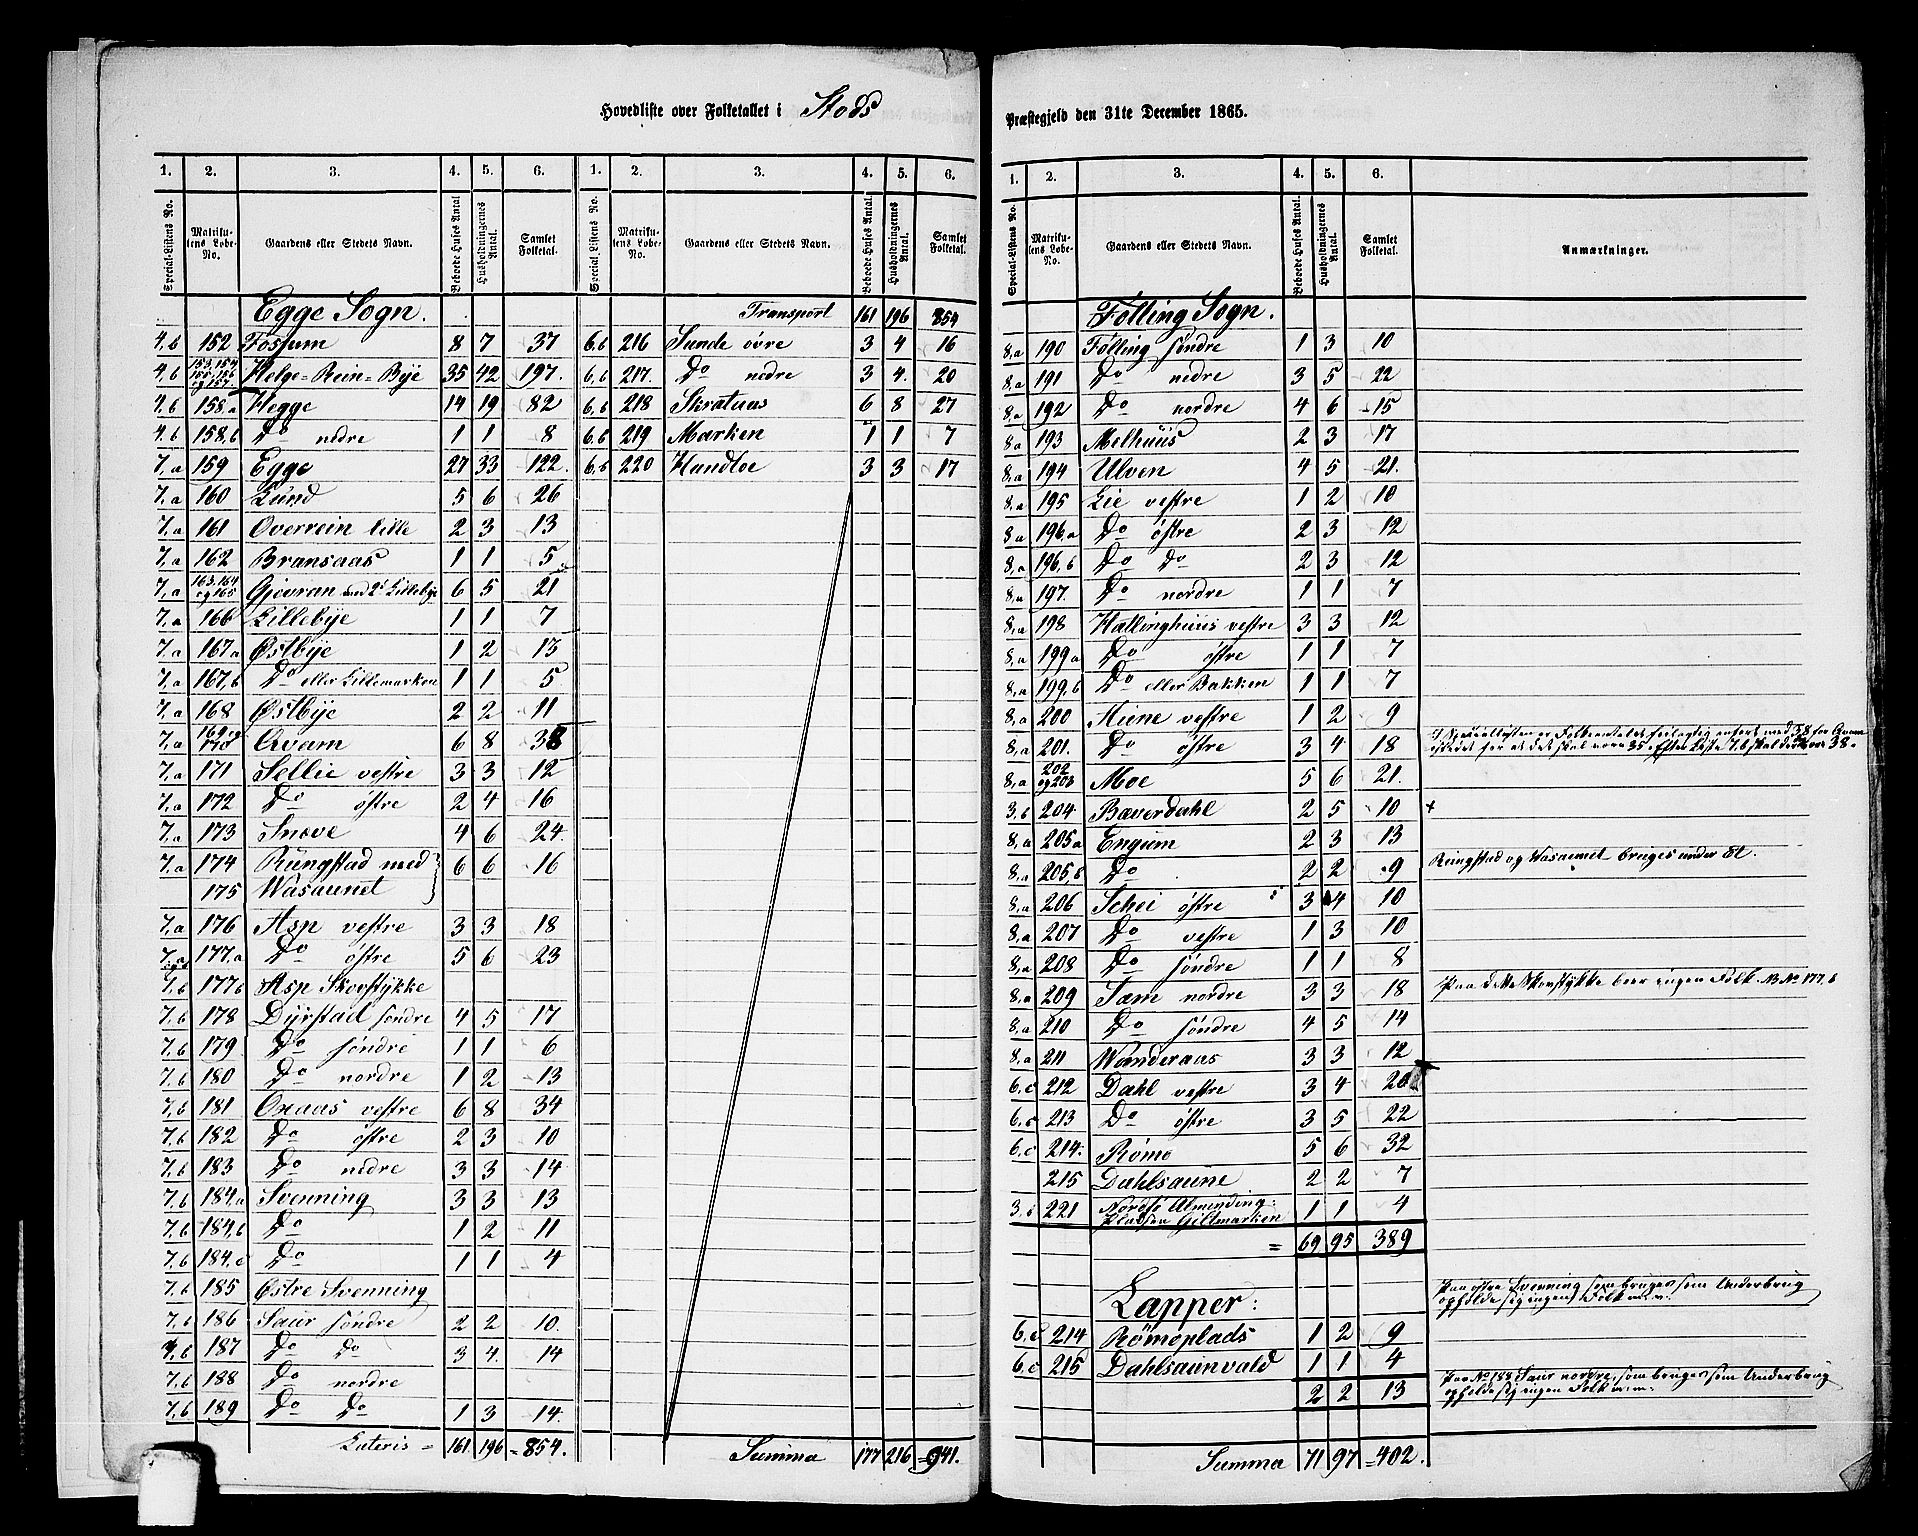 Hovedliste over Folketallet i Stods
1. 2. 3. 4. 5. 6. 1. 2. 3. 4. 5. 6.
Special-Listens No. Matrikulens Løbe-No. Gaardens eller Stedets Navn. Beboede Huses Antal. Husholdningernes Antal. Samlet Folketal. Special-Listens No. Matrikulens Løbe-No. Gaardens eller Stedets Navn. Beboede Huses Antal. Husholdningernes Antal. Samlet Folketal.
Egge Sogn.
4,b 152 Fossum 8 7 37
4,b 153, 154 155, 156 og 157 Helge-Rein-Bye 35 42 197.
4,b 158.a Hegge 14 19 82
4,b 158.b Do nedre 1 1 8
7,a 159 Egge 27 33 122.
7,a 160 Lund 5 6 26
7,a 161 Overrein lille 2 3 13
7,a 162 Bransaas 1 1 5
7,a 163, 164 og 165 Gjevran med 2 Lillebye 6 5 21
7,a 166 Lillebye 1 1 7
7,a 167a Østbye 1 2 13
7,a 167,b Do eller Lillemarken 1 1 5
7,a 168 Østbye 2 2 11
7,a 169 og 170 Qvam 6 8 38
7,a 171 Sellie vestre 3 3 12
7,a 172 Do østre 2 4 16
7,a 173 Snove 4 6 24.
7,a 174 Rungstad med 6 6 16
175 Wasaunet
7,a 176 Asp vestre 3 3 18
7,a 177.a Do østre 5 6 23
7,b 177b Asp Skovstykke
7,b 178 Dyrstad søndre 4 5 17
7,b 179. Do søndre 1 1 6
7,b 180 Do nordre 1 2 13
7,b 181 Onaas vestre 6 8 34
7,b 182 Do østre 2 3 10
7,b 183 Do nedre 3 3 14
7,b 184.a Svenning 3 3 13
7,b 184,b Do 1 2 11
7,b 184.c Do 1 1 4
7,b 185 Østre Svenning
7,b 186 Saur søndre 2 2 10.
7,b 187 Do Do 3 4. 14
7,b 188 Do nordre
7,b 189 Do Do 1 3 14.
Lateris = 161 196 = 854.
Transport 161 196 854
6,b 216 Sunde øvre 3 4 16
6,b 217. Do nedre 3 4. 20
6,b 218 Skrataas 6 8 27
6,b 219 Marken 1 1 7
6,b 220 Handloe 3 3 17
Summa 177 216 = 941.
Præstegjeld den 31te December 1865.
1. 2. 3. 4. 5. 6.
Special-Listens No. Matrikulens Løbe-No. Gaardens eller Stedets Navn. Beboede Huses Antal. Husholdningernes Antal. Samlet Folketal. Anmærkninger.
Følling Sogn.
8,a 190 Følling søndre 1 3 10
8,a 191 Do nedre 3 5 22
8,a 192 Do nordre 4 6 15
8,a 193 Melhuus 2 3 17
8,a 194 Ulven 4 5 21.
8,a 195 Lie vestre 1 2 10
8,a 196.a Do østre 2 3 12
8,a 196,b Do Do 2 3 12
8,a 197. Do nordre 1 1 7
8,a 198 Hallinghuus vestre 3 3 12
8,a 199a Do østre 1 1 7
8,a 199,b Do eller Bakken 1 1 7
8,a 200 Aune vestre 1 2 9
8,a 201. Do østre 3 4 18
8,a 202 og 203 Moe 5 6 21.
3,b 204 Bæverdahl 2 5 10 +
8,a 205a Engum 2 3 13
8,a 205,b Do 2 2 9 Rungstad og Wasaunet bruges under Et.
8,a 206 Schei østre 3 4 10
8,a 207 Do vestre 1 3 10
8,a 208 Do søndre 1 1 8
8,a 209 Tæm nordre 3 3 18 Paa dette Skovstykke boer ingen Folk No 177.b
8,a 210 Do søndre 4 5 14
8,a 211 Wanderaas 3 3 12
6,c 212 Dahl vestre 3 4 20
6,c 213 Do østre 3 5 22
6,c 214. Rømo 5 6 32
215 Dahlsaune 2 2 7
3,b 221 Nordsø Alminding: Pladsen Giltmarken 1 1 4
= 69 95 389
Paa østre Svenning som bruges som Underbrug
opholde sig ingen Folk m.m.
Lapper:
6,c 214 Rømoplads 1 2 9
6,c 215 Dahlsaunvald 1 1 4
2 2 13
Paa No 188 Saur nordre, som bruges som Underbrug
opholde sig ingen Folk m:m:
Summa 71 97 = 402.